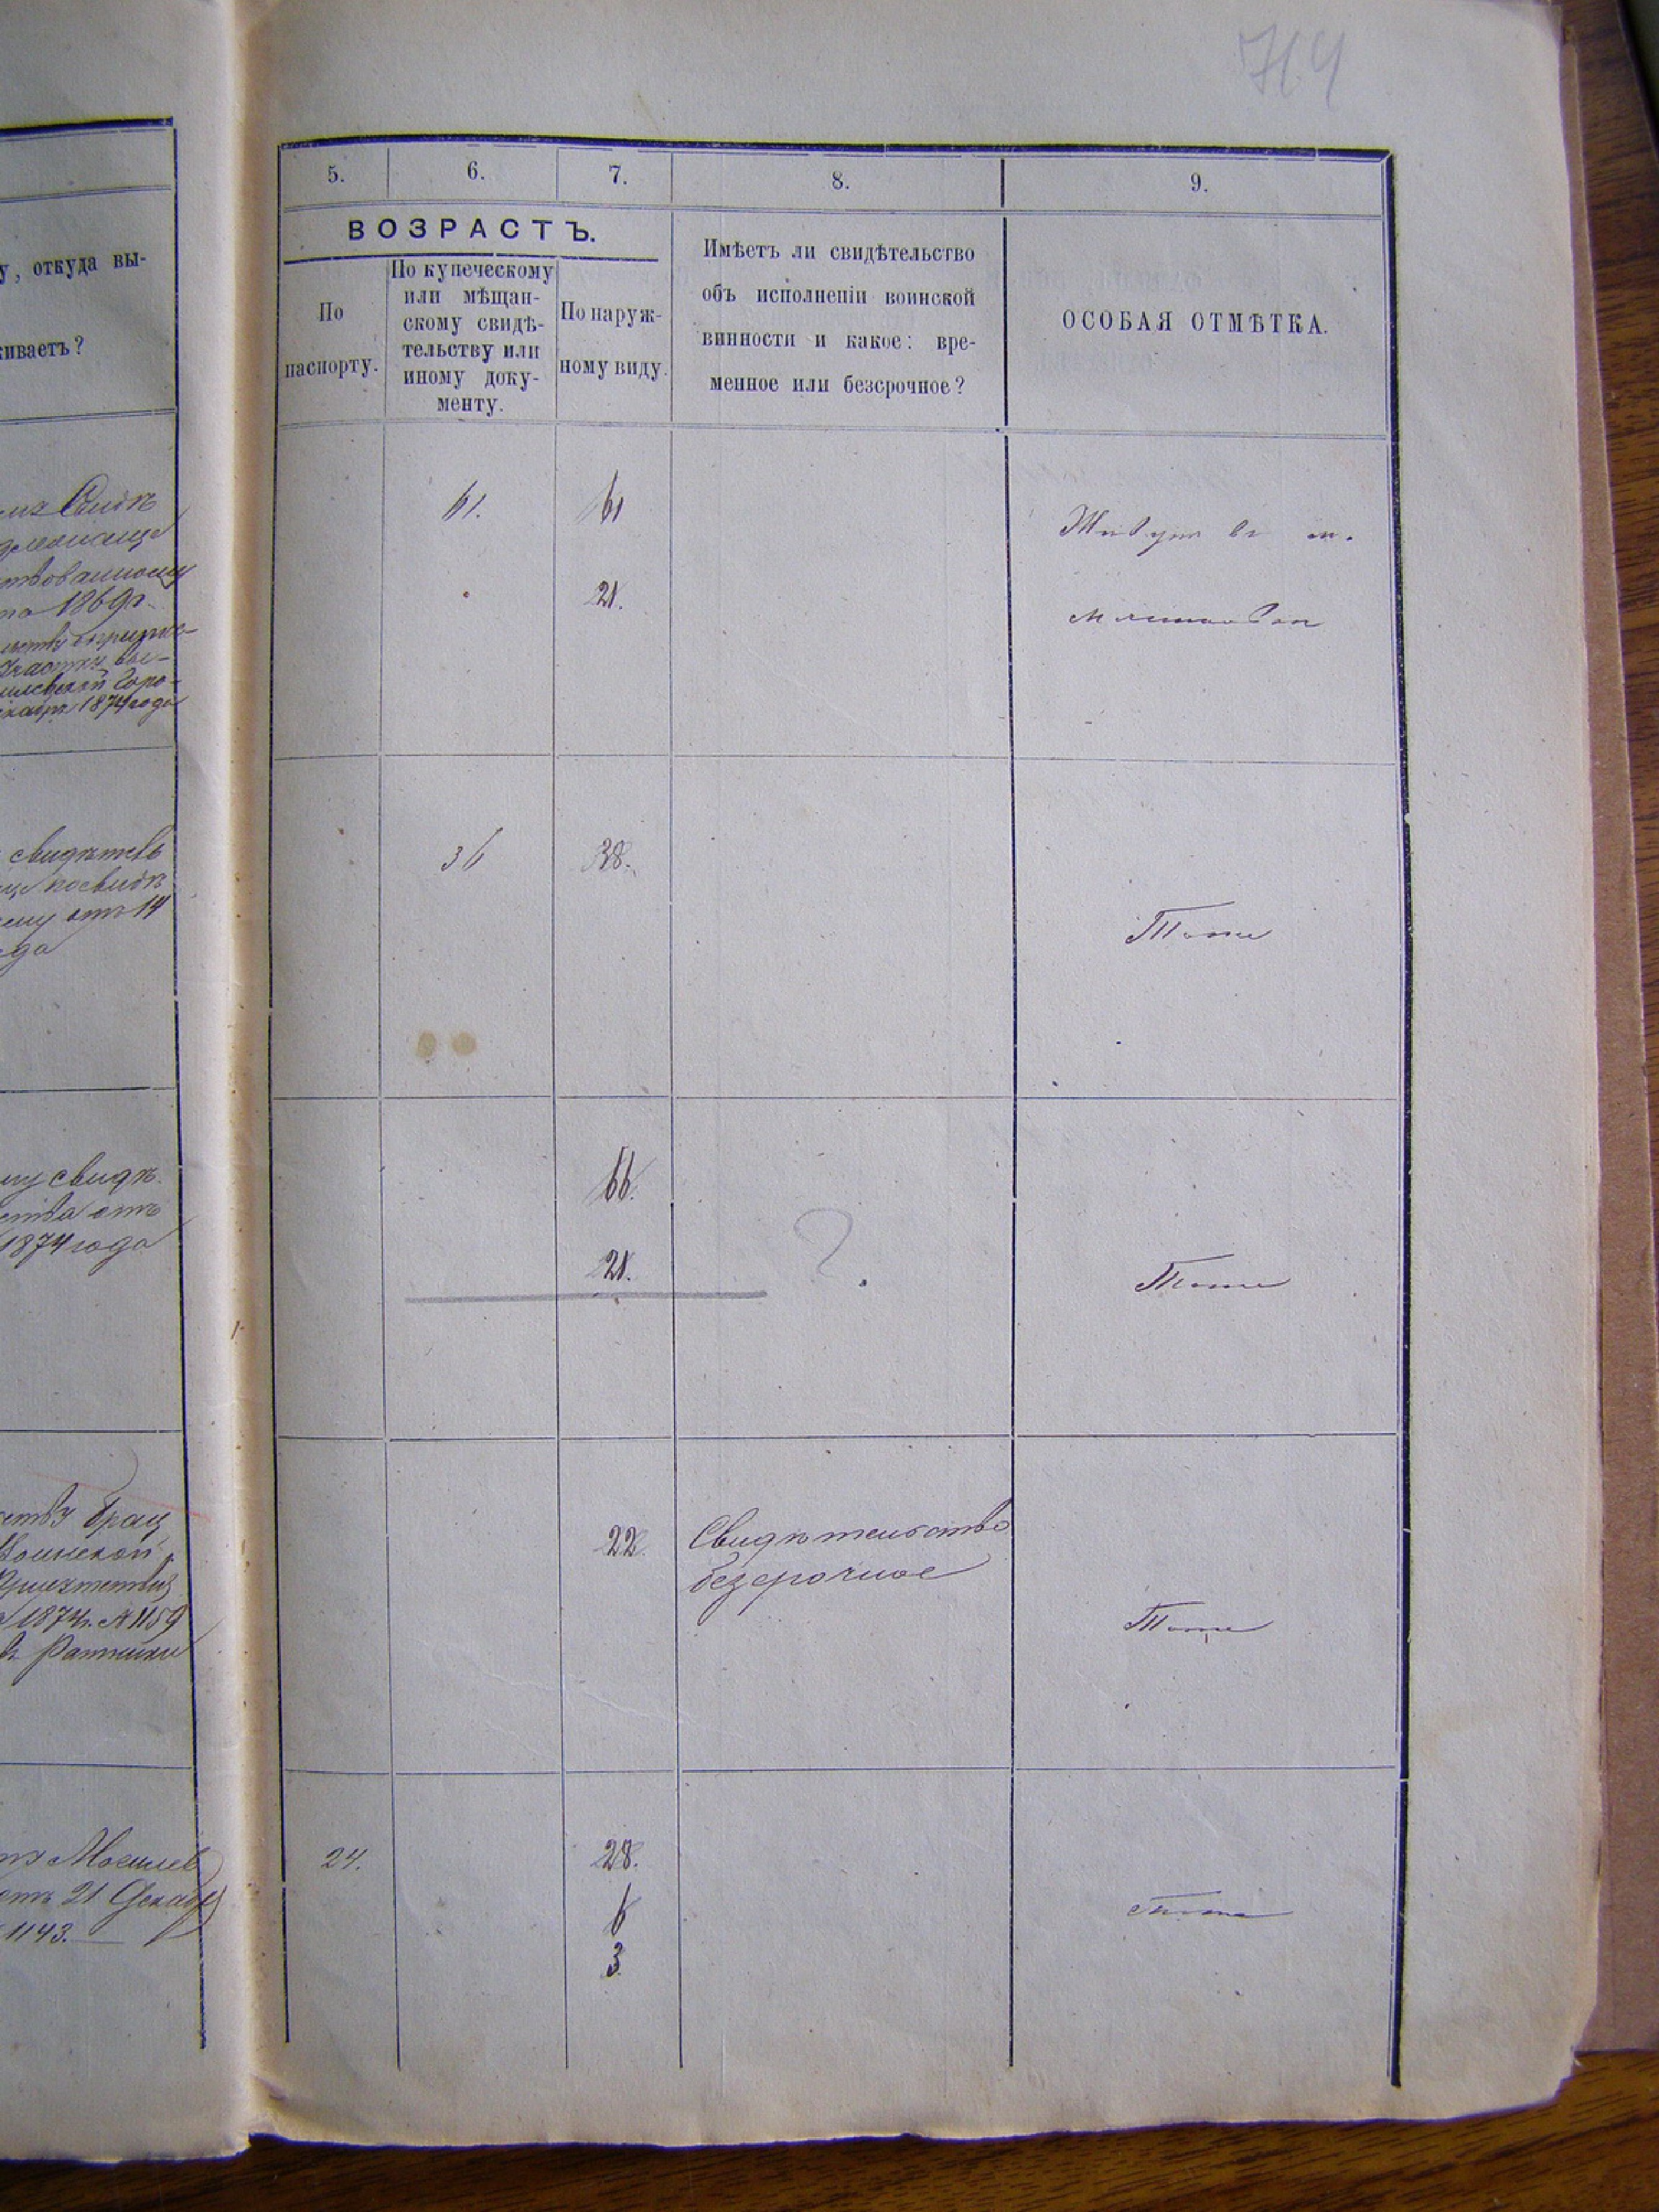 714
у, откуда вы-
живаетъ?
1869г.
1874 года
свидѣтель
отъ 14
да
му свидѣ
ства отъ
1874 года
ству Брац
Воинской
Присутствія
1874г. № 1159
Ратники
Могилев
отъ 21 Декабр
1143.
5. 6. 7. 8. 9.
ВОЗРАСТЪ.
По
паспорту.
По купеческому
или мѣщан-
скому свидѣ-
тельству или
иному доку-
менту.
По наруж-
ному виду.
Имѣетъ ли свидѣтельство
объ исполненіи воинской
винности и какое: вре-
менное или безсрочное?
ОСОБАЯ ОТМѢТКА.
61. 61
21.
Живутъ въ м.
36 38.
Тоже
66.
21. ?
Тоже
22. Свидѣтельство
безсрочное
Тоже
24. 28.
6
3.
Тоже